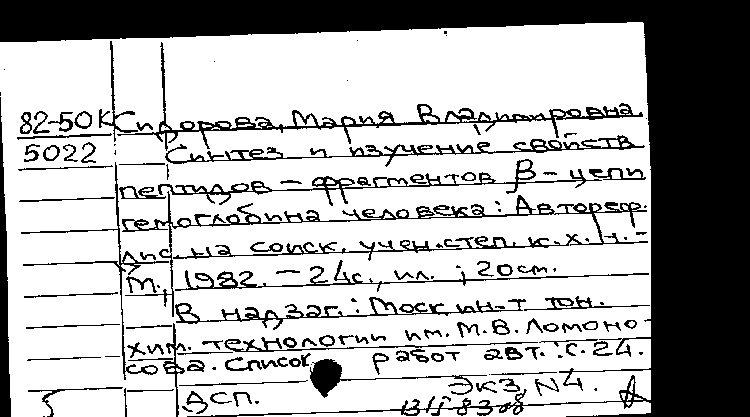 82-50К Сидорова, Мария Владимировна
5022 Синтез и изучение свойств
пептидов - фрагментов β - цепи
гемоглобина человека: Автореф.
дис. на соиск. учен. степ. к. х. н. -
М., 1982. - 24с., ил. ; 20см.
В надзаг.: Моск. ин-т тон.
хим. технологии им. М. В. Ломоно-
сова. Список работ авт.: с. 24.
ДСП. Экз. N4.